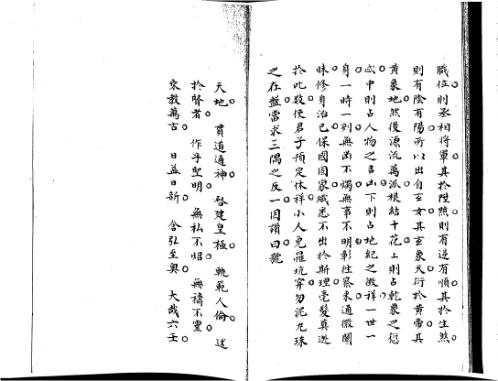 職位則丞相將軍其於陞照則有逆有順其於生煞
則有陰有陽所以出自玄女其玄象天衍於黃帝其
黃象地然後源流萬派根結千花上則占乾象之愆
忒中則占人物之吉凶下則占地紀之徵祥一世一
身一時一刻無幽不燭無事不明彰往察來通微闡
昧修身治己保國國家纖悉不出於斯理毫髮莫逃
於此數使君子預定休祥小人免罹坑穽勿泥九珠
之在盤當求三隅之反一因讚曰號
天地 貫道通神 啓建皇極 軌範人倫 述
於賢者 作乎聖明 無私不炤 無禱不靈
垂教萬古 日益日新 含弘至奧 大哉六壬